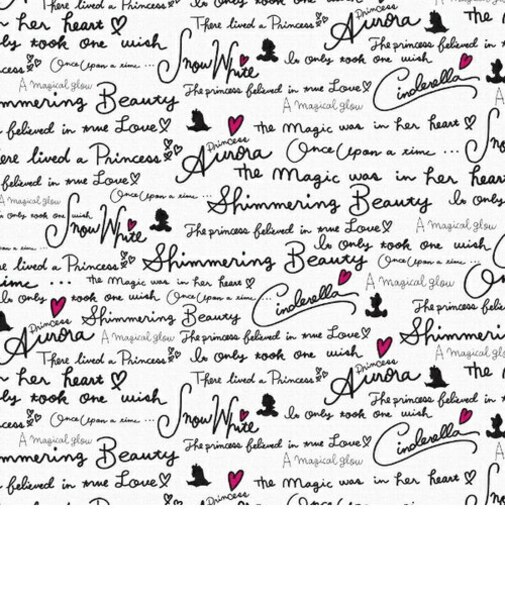 There lived a Princess Princess Aurora the M
her heart
ly took one wish The princess believed in
cess Once Upon a time ... Snow White Is only took one wish
A magical glow The princess believed in true Love Cinderella
mmering Beauty A magical glow
believed in true Love the Magic was in her heart
Princess
ere lived a Princess Aurora Once Upon a time ...
the Magic was in her heart
believed in true Love
A magical glow Once Upon a time ... Shimmering Beauty Is only
only took one wish Snow White
The princess believed in true Love A magical glow
Is only took one wish
Shimmering Beauty Once Upon a time ...
re lived a Princess
ime ... the Magic was in her heart A magical glow
Is only took one wish Once Upon a time ... Cinderella
The princess
Princess Aurora Shimmering Beauty
A magical glow The princess believed in true Love Shimmeri
There lived a Princess Is only took one wish A magical glow
Princess
her heart There lived a Princess Aurora the M
ly took one wish The princess believed in
cess Once Upon a time ... Snow White Is only took one wish
A magical glow The princess believed in true Love Cinderella
mmering Beauty A magical glow
believed in true Love the Magic was in her heart
Princess